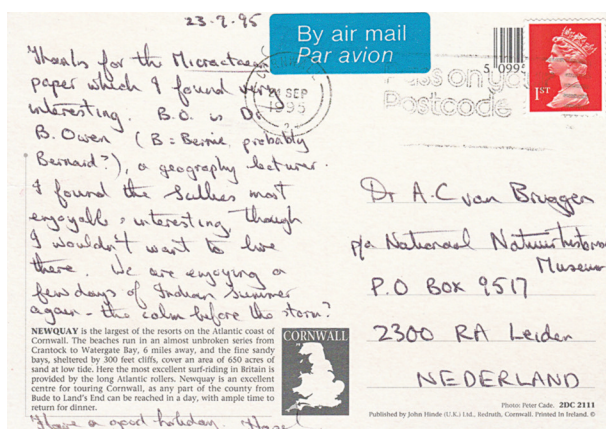 23-9-95
Thanks for the Micractaeon
paper which I found very
interesting. B.O. is Dr
B. Owen (B = Bernie, probably
Bernard?), a geography lecturer.
I found the Scillies most
enjoyable & interesting, though
I wouldn't want to live
there. We are enjoying a
few days of Indian Summer
again - the calm before the storm?
NEWQUAY is the largest of the resorts on the Atlantic coast of
Cornwall. The beaches run in an almost unbroken series from
Crantock to Watergate Bay, 6 miles away, and the fine sandy
bays, sheltered by 300 feet cliffs, cover an area of 650 acres of
sand at low tide. Here the most excellent surf-riding in Britain is
provided by the long Atlantic rollers. Newquay is an excellent
centre for touring Cornwall, as any part of the county from
Bude to Land's End can be reached in a day, with ample time to
return for dinner.
Have a good holiday.
CORNWALL
By air mail
Par avion
SEP
1995
Postcode
1ST
Dr A.C van Bruggen
p/a Nationaal Natuurhistorisch
Museum
P.O BOX 9517
2300 RA Leiden
NEDERLAND
Photo: Peter Cade. 2DC 2111
Published by John Hinde (U.K.) Ltd., Redruth, Cornwall. Printed in Ireland. ©